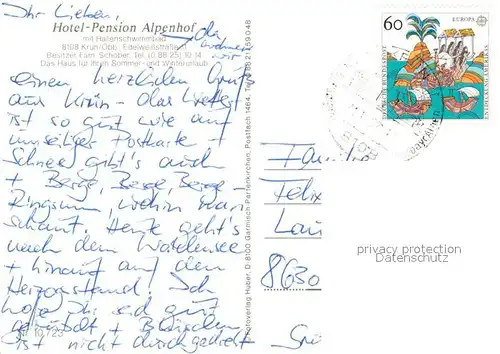 Ihr Lieben,
Hotel-Pension Alpenhof
mit Hallenschwimmbad
8108 Krün/Obb. Edelweißstraße 11
Besitzer Fam. Schober, Tel. (0 88 25) 10 14
Das Haus für Ihren Sommer- und Winterurlaub
einen herzlichen Gruß
aus Krün - das Wetter
ist so gut wie auf
umseitiger Postkarte +
Schnee gibt's auch
+ Berge, Berge, Berge
Ringsum, wohin man
schaut. Heute geht's
nach dem Walchensee
+ hinauf auf den
Herzogstand. Ich
hoffe Ihr seid gut
+
ist nicht durchgedreht
10.723
Fotoverlag Huber, D-8100 Garmisch-Partenkirchen, Postfach 1464, Tel. 0 88 21 / 5 90 48
60
EUROPA
DEUTSCHE BUNDESPOST
ENTDECKUNG AMERIKAS
Familie
Felix
8630
privacy protection
Datenschutz